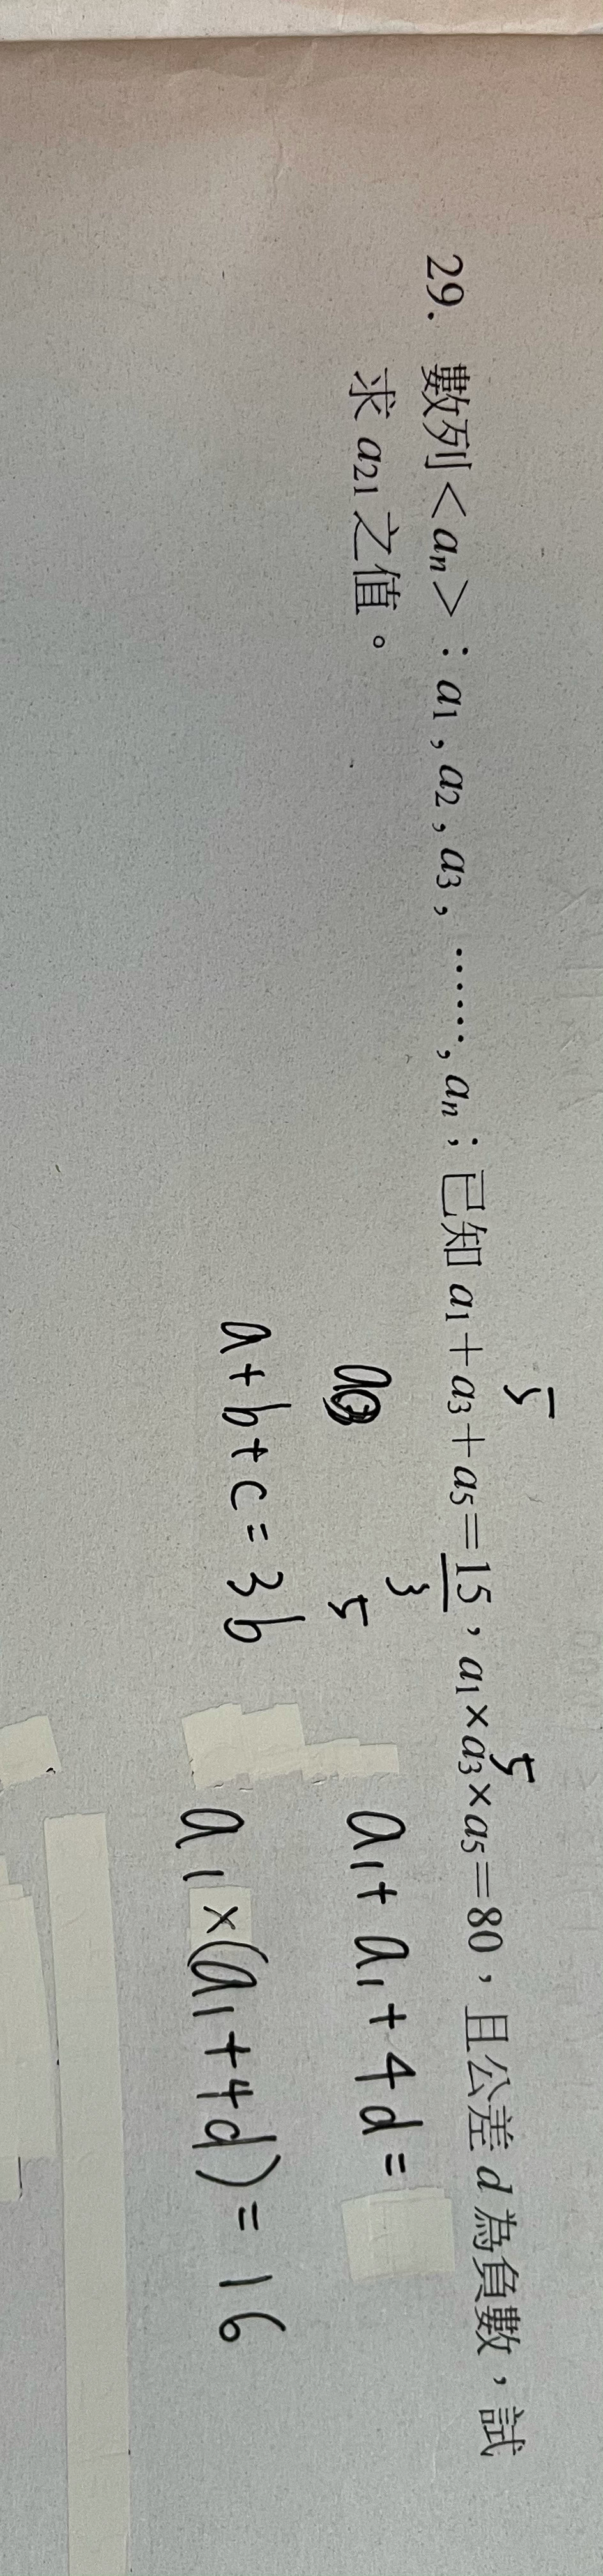 29. 數列<aₙ>：a₁,a₂,a₃,……,aₙ；已知a₁+a₃+a₅=15，a₁×a₃×a₅=80，且公差d為負數，試
求a₂₁之值。
5
5
3
5
a+b+c=3b
a₁+a₁+4d=
a₁×(a₁+4d)=16